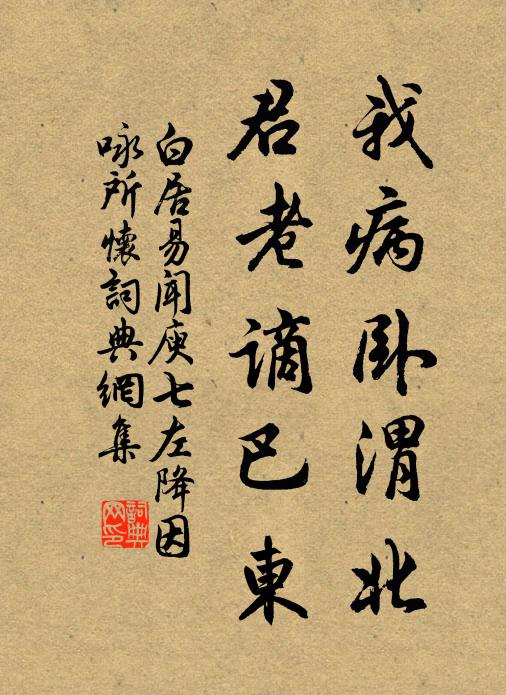 我病卧渭北
君老謫巴東
白居易聞庾七左降因
咏所懷詞典網集
詞典
网印